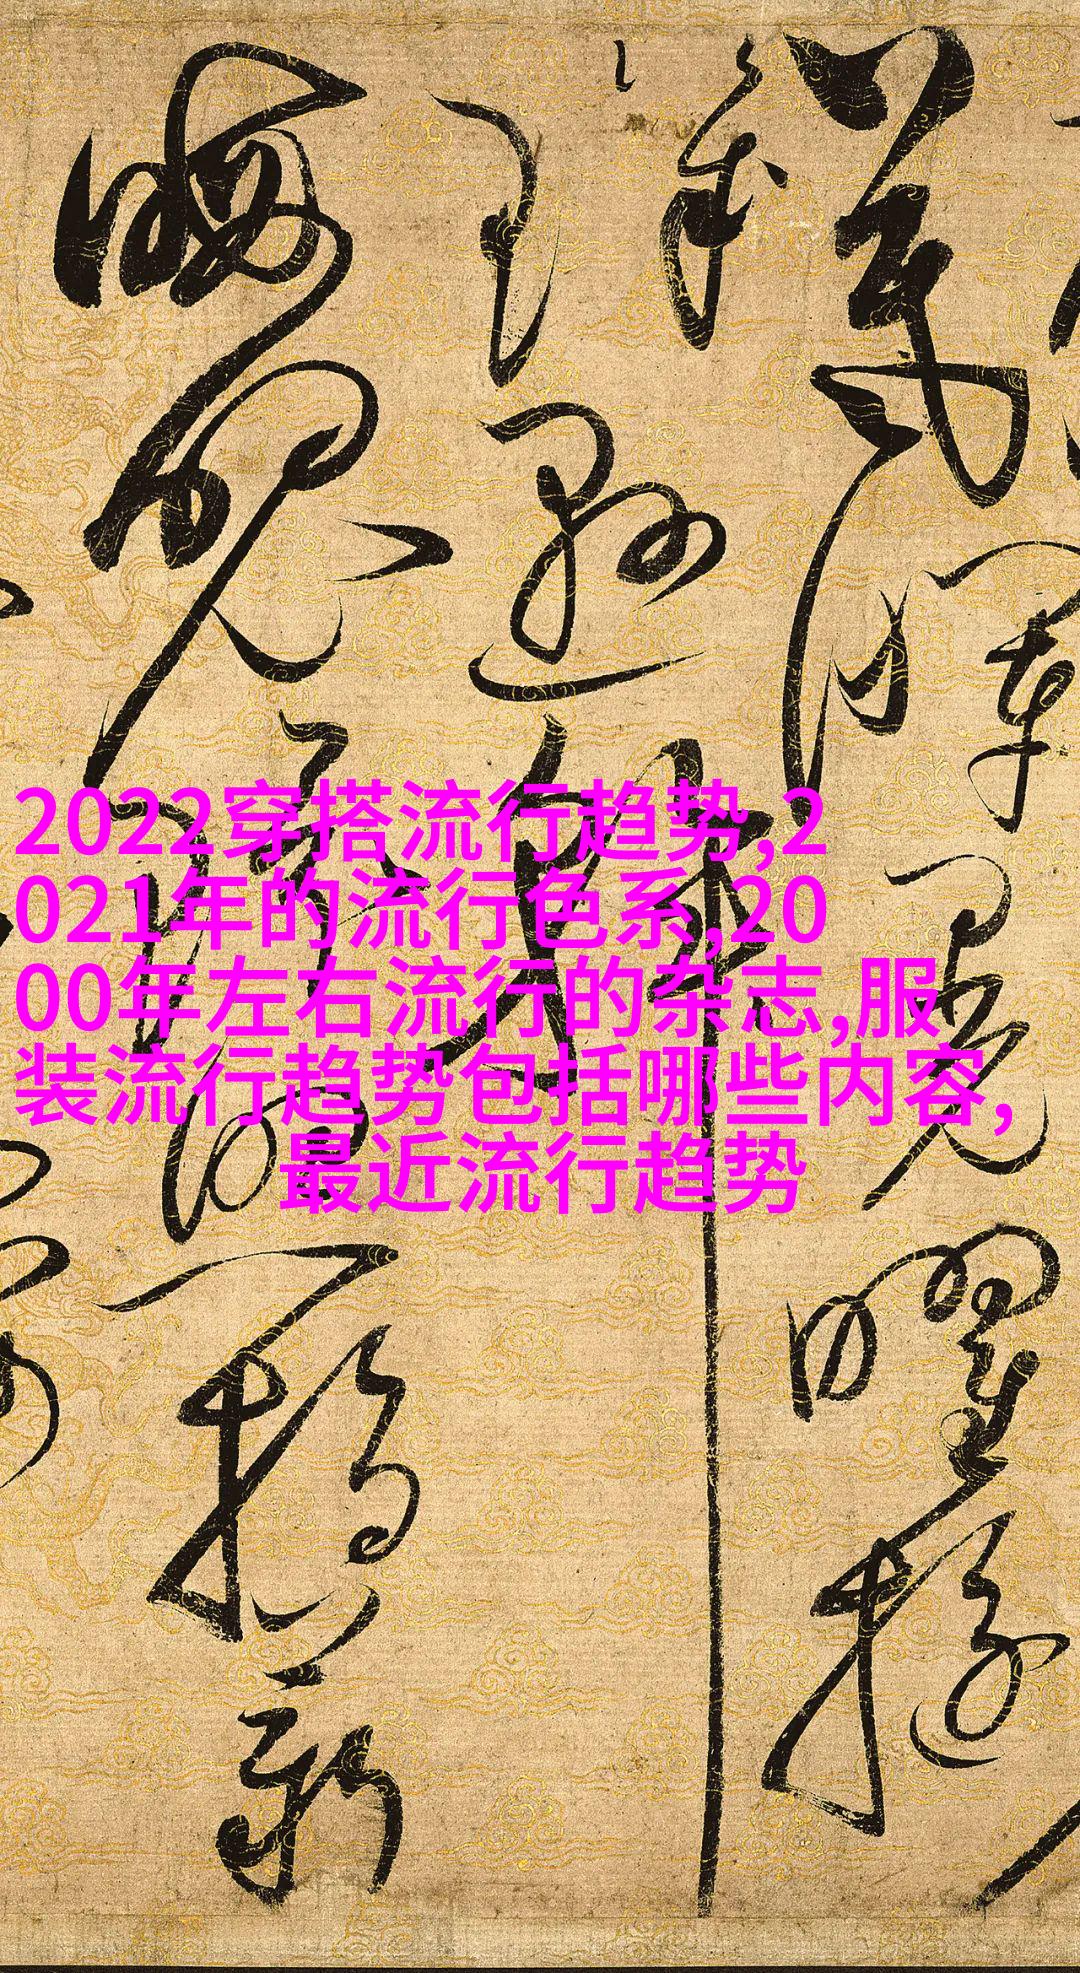 2022穿搭流行趋势,2
021年的流行色系,20
00年左右流行的杂志,服
装流行趋势包括哪些内容,
最近流行趋势
暉
曜旋
璣懸斡
晦魄環照指薪